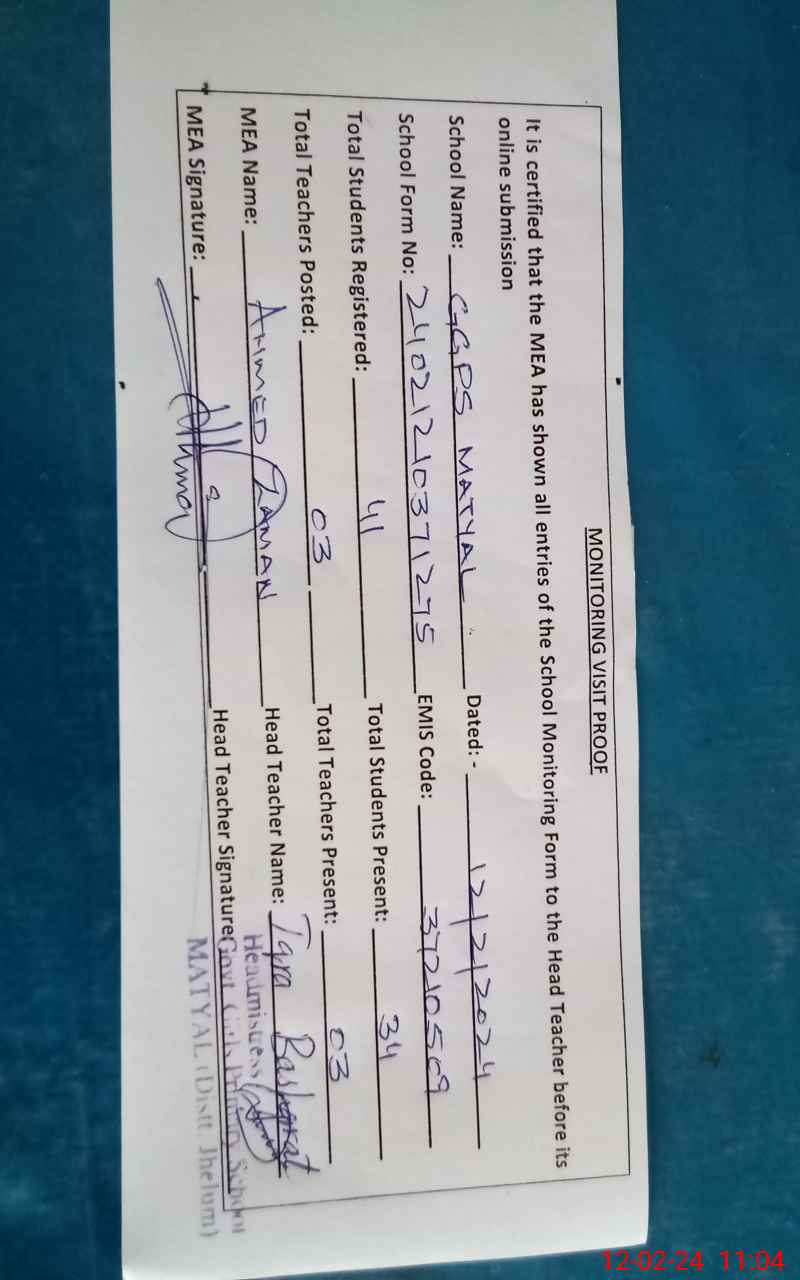 MONITORING VISIT PROOF
It is certified that the MEA has shown all entries of the School Monitoring Form to the Head Teacher before its
online submission
School Name: GGPS MATYAL Dated: - 12/2/2024
School Form No: 24021210371275 EMIS Code: 37210509
Total Students Registered: 41 Total Students Present: 34
Total Teachers Posted: 03 Total Teachers Present: 03
MEA Name: AHMED ZAMAN Head Teacher Name: Iqra Basharat
MEA Signature: Head Teacher Signature
Headmistress
Govt. Girls Primary School
MATYAL (Distt. Jhelum)
12-02-24 11:04